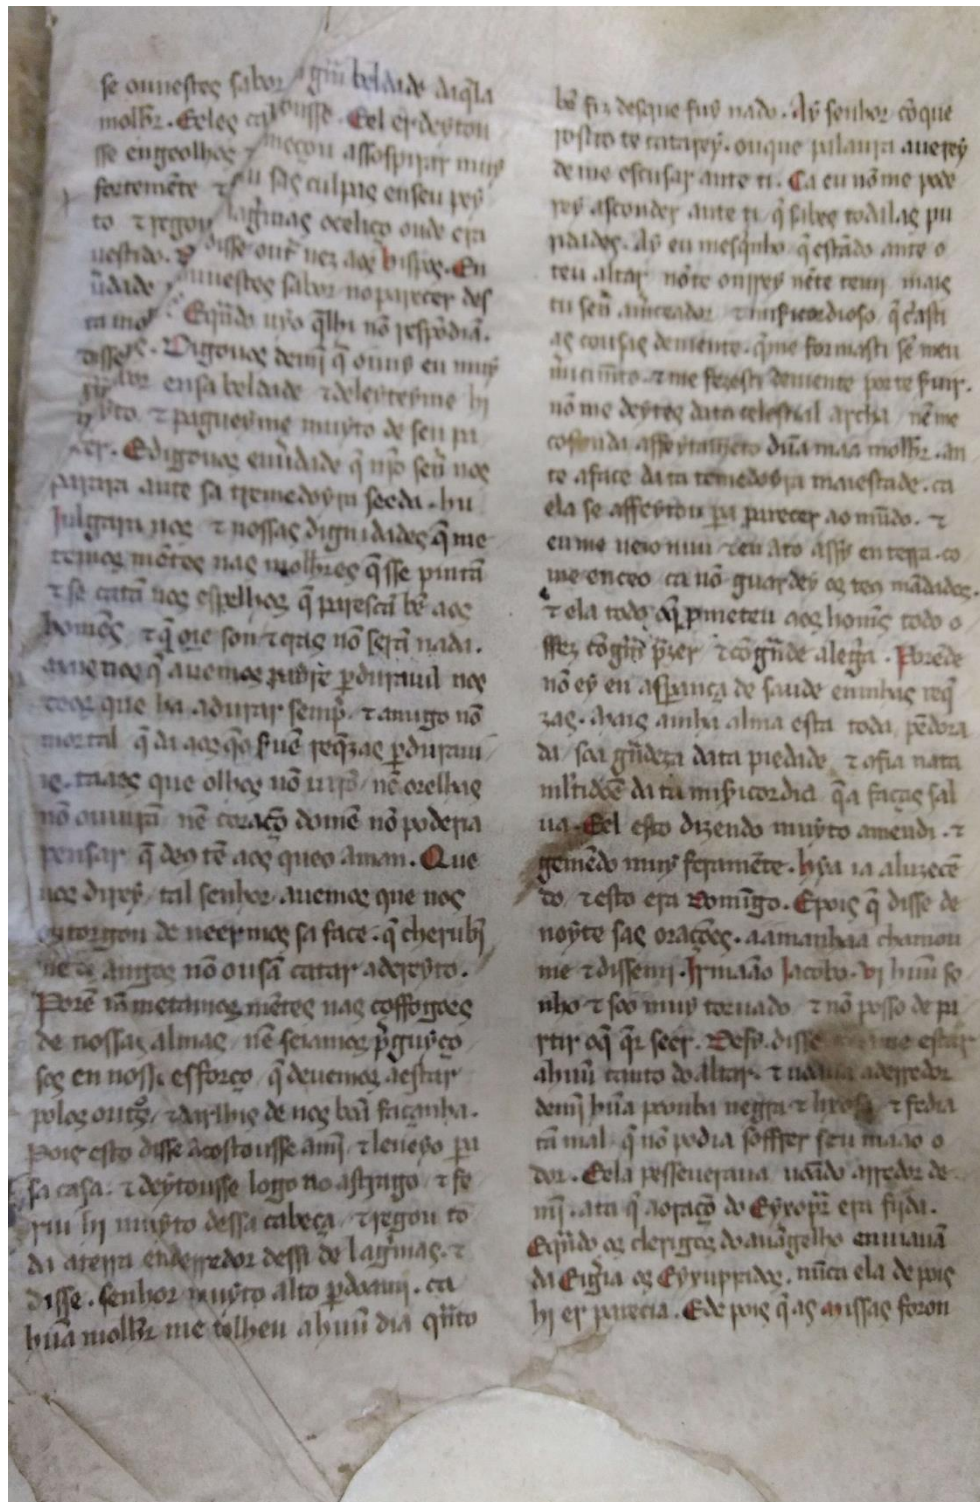 se ouuestes sabor grã beldade daq̃la
molhr̃. Eeles ca ousse. Eel er deytou
sse engeolhos ⁊ meçou assospirar muy
fortemẽte ⁊ sas culpas enseu pey
to ⁊ regou lagr̃mas o celiço onde era
uestido. disse outr̃ uez aos bispos. En
u̾dade uuestes sabor no pareçer des
ta mo. Eqũdo uyo q̃lhi nõ respõdiã.
disse. Digouos demĩ q̃ ouuy eu muy
ensa beldade ⁊ deleyteyme hi
⁊ pagueyme muyto de seu pa
çer. Edigouos enu̾dade q̃ nr̃o sen̾ nos
parara ante sa tremedoyra seeda. hu
Julgara nos ⁊ nossas dignidades q̃ me
temos mẽtes nas molhr̃es q̃sse pintã
⁊ se catã nos espelhos q̃ parescã bẽ aos
homẽs ⁊ q̃ oie son ⁊ cras nõ serã nada.
q̃ auemos padre p̱durauil nos
ceos que ha adurar semp̃. ⁊ amigo nõ
mortal q̃ da aos q̃o s̾uẽ req̃zas p̱duraui
is. caaos que olhos nõ uirõ nẽ orelhas
nõ ouuirã nẽ coraçõ domẽ nõ poderia
pensar q̃ deus tẽ aos queo aman. Que
uos direy tal senhor auemos que nos
outorgou de ueermos sa face. q̃ cherubĩ
ne os angos nõ ousã catar adereyto.
Porẽ nõ metamos mẽtes nas coffogoes
de nossas almas nẽ seiamos p̃guyço
sos en nosso esforço q̃ deuemos aestar
polos outros ⁊ darlhis de nos bõa façanha.
Pois esto disse acostousse amĩ ⁊ leueyo pa
sa casa. ⁊ deytousse logo no astrago ⁊ fe
riu hi muyto dessa cabeça ⁊ regou to
da aterra enderredor dessi de lagr̃mas. ⁊
disse. senhor muyto alto p̱doami. ca
hũa molhr̃ me tolheu ahuũ dia quãto
bẽ fiz desque fuy nado. Ay senhor cõque
rostro te catarey. ouque palaura auerey
de me escusar ante ti. Ca eu nõ me pode
rey asconder ante ti q̃ sabes todalas pu
ridades. Ay eu mesq̃nho q̃ estãdo ante o
teu altar nõte onrrey nẽte temi mais
tu sen̾ misericordioso q̃ c̾asti
as cousas demente. q̃me formasti sẽ meu
⁊ me fezesti demente porte s̾uir.
nõ me deytes data celestial archa nẽ me
cofonda affeytamẽto dũa maa molhr̃. an
te aface da ta temedoyra maiestade. ca
ela se affeytou pa pareçer ao mũdo. ⁊
eume ueio nuu ⁊ en ato assy en terra. co
me onceo ca nõ guardey os teus mãdados.
⁊ ela todo oq̃ p̱meteu aos homẽs todo o
ffez cõgrã p̃zer ⁊ cõgrãde alegria. Porende
nõ ey eu asperança de saude eminhas req̃
zas. Mais amha alma esta toda pẽdora
da soa grãdeza data piedade ⁊ ofia nata
mltidõe da ta mis̾icordia q̃a faças sal
ua. Eel esto dizendo muyto amendi. ⁊
gemẽdo muy feramẽte. hya ia aluzecẽ
do ⁊ esto era Domingo. Epois q̃ disse de
noyte sas oraçoes. aamanhaa chamou
me ⁊ dissemi. Irmaão Jacobo. Vi huũ so
nho ⁊ soo muy toruado ⁊ nõ posso de pa
rtir oq̃ q̃r seer. Desy disse estar
ahuũ canto do altar. ⁊ uoaua aderredor
demĩ hũa poonba negra ⁊ lixosa ⁊ fedia
tã mal q̃ nõ podia soffrer seu maao o
dor. Eela perseueraua uoãdo arredor de
mĩ. ata q̃ aoraçõ do Eyxop̱r̃ era fijda.
Equãdo os clerigos do auãgelho enuiauã
da Eigr̃ia os Eyxuprados. nũca ela de pois
hi er pareçia. Ede pois q̃ as missas foron